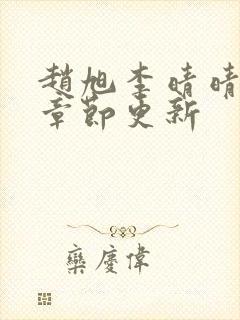 趙旭李晴晴
章節更新
欒慶偉